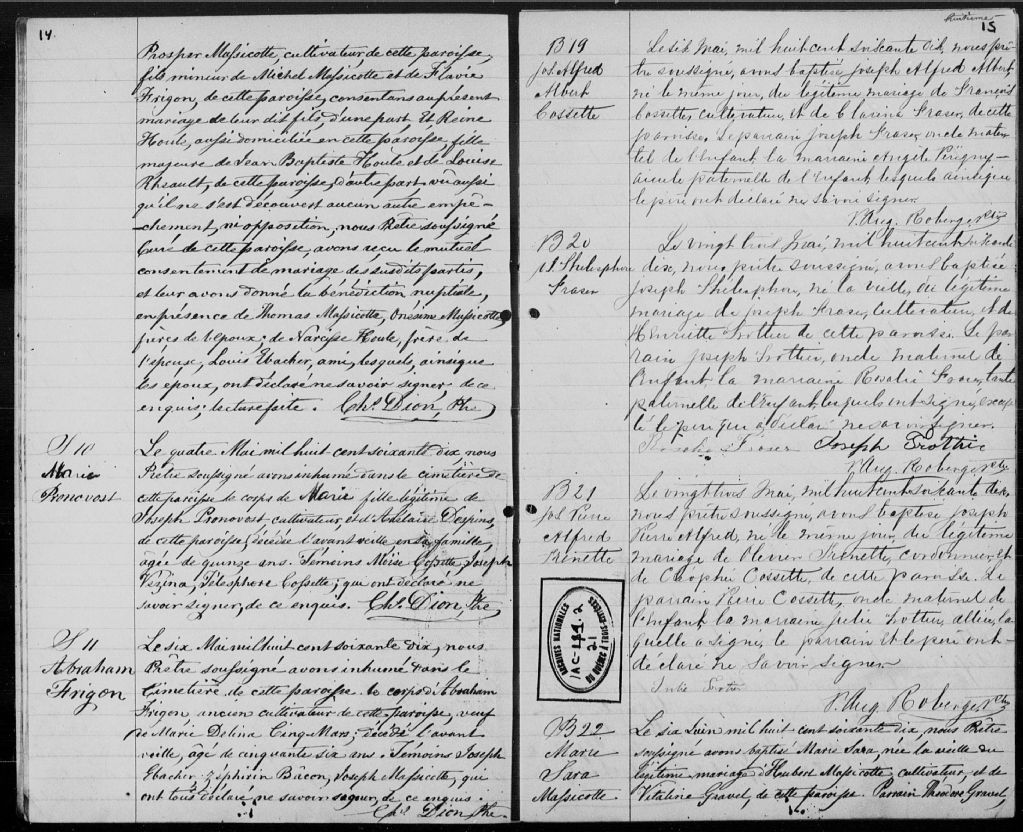 14.
Prosper Massicotte, cultivateur, de cette paroisse,
fils mineur de Michel Massicotte et de Flavie
Frigon, de cette paroisse, consentans au présent
mariage de leur dit fils, d'une part. Et Reine
Houle, aussi domiciliée en cette paroisse, fille
majeure de Jean Baptiste Houle et de Louise
Rheault, de cette paroisse, d'autre part vû aussi
qu'il ne s'est découvert aucun autre empê-
-chement, ni opposition, nous Prêtre soussigné
Curé de cette paroisse, avons reçu le mutuel
consentement de mariage des susdits partis,
et leur avons donné la bénédiction nuptiale,
en présence de Thomas Massicotte, Onésime Massicotte,
frères de l'époux; de Narcisse Houle, frère de
l'épouse, Louis Ebacher, ami, lesquels, ainsi que
les epoux, ont déclaré ne savoir signer de ce
enquis; lecture faite. Chs. Dion, Ptre
S 10
Marie
Pronovost
Le quatre Mai mil huit cent soixante dix, nous
Prêtre soussigné avons inhumé dans le cimetière de
cette paroisse le corps de Marie fille légitime de
Joseph Pronovost cultivateur, et d'Adélaïde Despins,
de cette paroisse, décédée l'avant veille, en sa famille,
âgée de quinze ans. Témoins Moïse Cossette, Joseph
Vezina, Télesphore Cossette; qui ont déclaré ne
savoir signer, de ce enquis. Chs. Dion Ptre
S 11
Abraham
Frigon
Le six Mai mil huit cent soixante dix, nous
Prêtre soussigné avons inhumé dans le
Cimetière de cette paroisse le corps d'Abraham
Frigon, ancien cultivateur de cette paroisse, veuf
de Marie Delina Cinq-Mars; décédé l'avant
veille, âgé de cinquante six ans. Témoins Joseph
Ebacher, Zéphirin Bacon, Joseph Massicotte, qui
ont tous déclaré ne savoir signer, de ce enquis.
Chs. Dion Ptre
huitième
15
B 19
Jos Alfred
Albert
Cossette
Le six Mai, mil huit cent soixante dix, nous prê-
tre soussigné, avons baptisé Joseph Alfred Albert
né le même jour, du légitime mariage de François
Cossette, cultivateur, et de Clarina Fraser, de cette
paroisse. Le parrain Joseph Fraser, oncle mater-
nel de l'Enfant la marraine Angèle Périgny-
aieule paternelle de l'Enfant lesquels ainsi que
le père ont déclaré ne savoir signer.
F. Aug. Roberge Ptre
B 20
Js. Philosophore
Fraser
Le vingt trois Mai, mil huit cent soixante
dix, nous prêtre soussigné, avons baptisé
Joseph né la veille, du légitime
mariage de Joseph Fraser, Cultivateur, et de
Henriette Trottier de cette paroisse. Le par-
rain Joseph Trottier, oncle maternel de
l'Enfant la marraine Rosalie Fraser, tante
paternelle de l'Enfant lesquels ont signé, excep-
té le père qui a déclaré ne savoir signer.
Fraser Joseph Trottier
F. Aug. Roberge Ptre
B 21
Jos Pierre
Alfred
Frenette
Le vingt trois Mai, mil huit cent soixante dix,
nous prêtre soussigné, avons baptisé Joseph
Pierre Alfred, né le même jour, du légitime
mariage de Olivier Frenette, Cordonnier, et
de Cossette, de cette paroisse. Le
parrain Pierre Cossette, oncle maternel de
l'Enfant la marraine Julie Trottier, alliée, la-
quelle a signé, le parrain et le père ont
déclaré ne savoir signer
Julie Trottier
F. Aug. Roberge Ptre
ARCHIVES NATIONALES
2
21
DU QUÉBEC À TROIS-RIVIÈRES
B 22
Marie
Sara
Massicotte
Le six Juin mil huit cent soixante dix, nous Prêtre
soussigné avons baptisé Marie Sara, née la veille du
légitime mariage d'Hubert Massicotte, cultivateur, et de
Vitaline Gravel, de cette paroisse. Parrain Théodore Gravel,